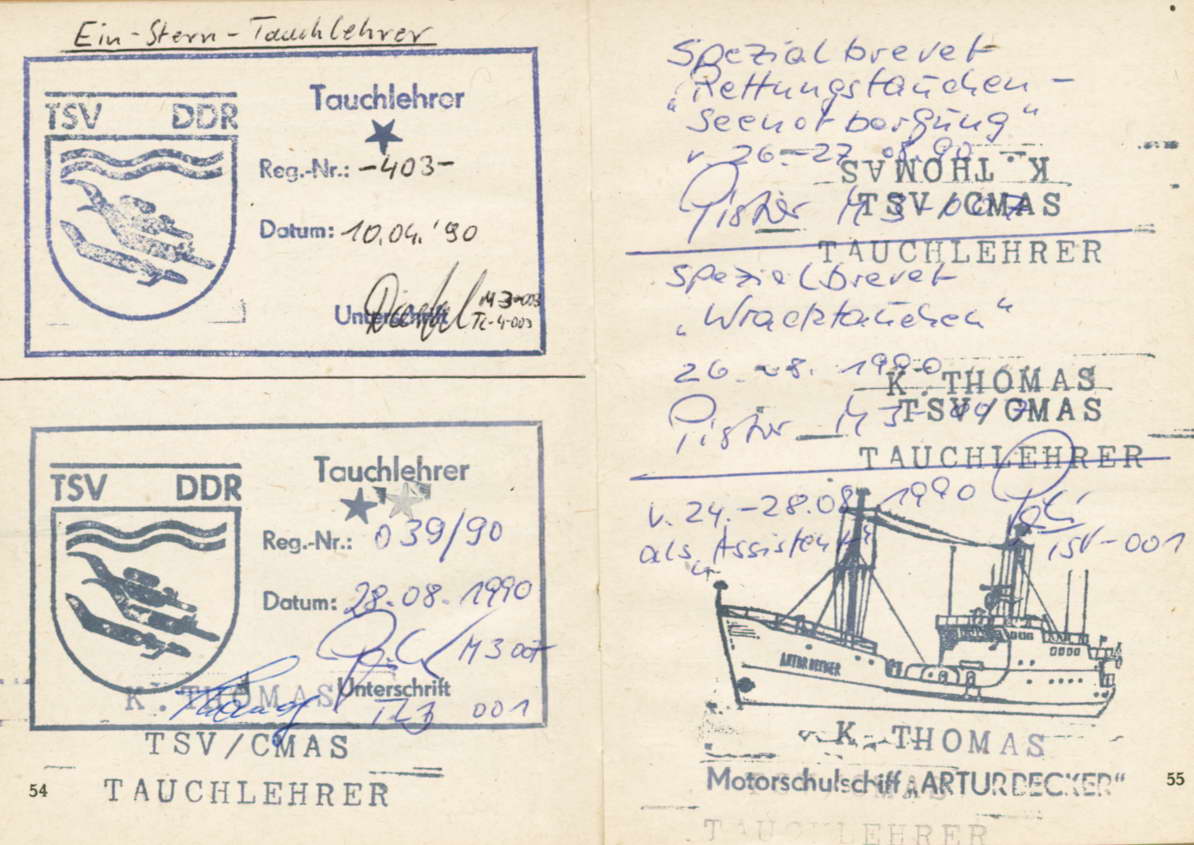 Ein-Stern-Tauchlehrer
TSV DDR
Tauchlehrer
Reg.-Nr.: -403-
Datum: 10.04.'90
Unterschrift
M3-003
TL-4-003
TSV DDR
Tauchlehrer
Reg.-Nr.: 039/90
Datum: 28.08.1990
M3 007
Unterschrift
TL3 001
K. THOMAS
TSV/CMAS
TAUCHLEHRER
54
Spezialbrevet
"Rettungstauchen-
Seenotbergung"
v. 26.-27.08.90
K. THOMAS
M3-007
TSV/CMAS
TAUCHLEHRER
Spezialbrevet
"Wracktauchen"
26.-28.1990
K. THOMAS
M3-007
TSV/CMAS
TAUCHLEHRER
v. 24.-28.08.1990
als Assistent
TSV-001
ARTUR BECKER
K. THOMAS
Motorschulschiff „ARTUR BECKER"
THOMAS
TAUCHLEHRER
55